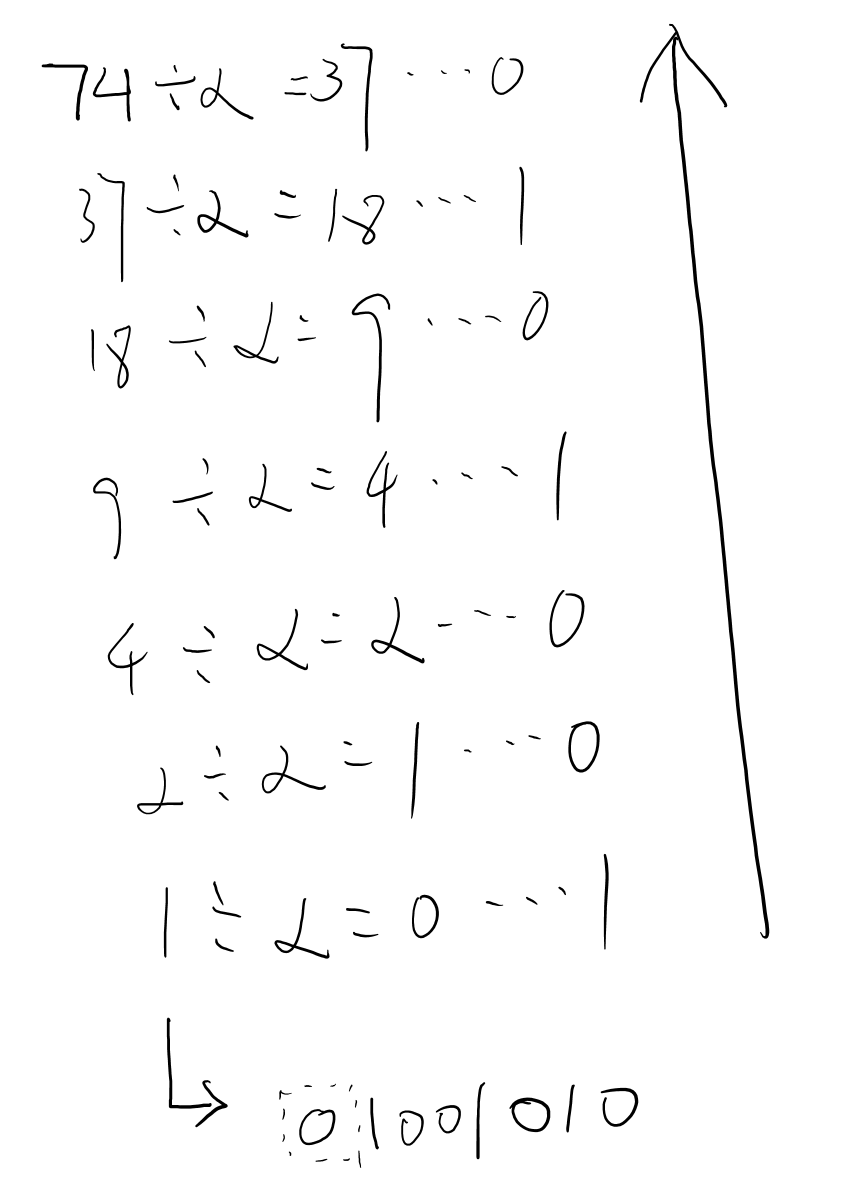 74 ÷ 2 = 37 ... 0
37 ÷ 2 = 18 ... 1
18 ÷ 2 = 9 ... 0
9 ÷ 2 = 4 ... 1
4 ÷ 2 = 2 ... 0
2 ÷ 2 = 1 ... 0
1 ÷ 2 = 0 ... 1
01001010